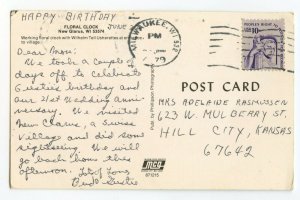 HAPPY - BIRTHDAY
JUNE
FLORAL CLOCK
New Glarus, WI 53574
Working floral clock with Wilhelm Tell
to village
MILWAUKEE, WI 532
79
PEOPLE'S RIGHT
USA 10c
Dear Mom:
We took a couple of
days off to celebrate
Gusties birthday and
our 41st Wedding anni-
versary. We visited
New Glarus, a Swiss
Village and did some
sightseeing. We will
go back home this
afternoon. Lots of Love
Gustie
POST CARD
MRS ADELAIDE RASMUSSEN
623 W. MULBERRY ST.
HILL CITY, KANSAS
67642
MCG
671215